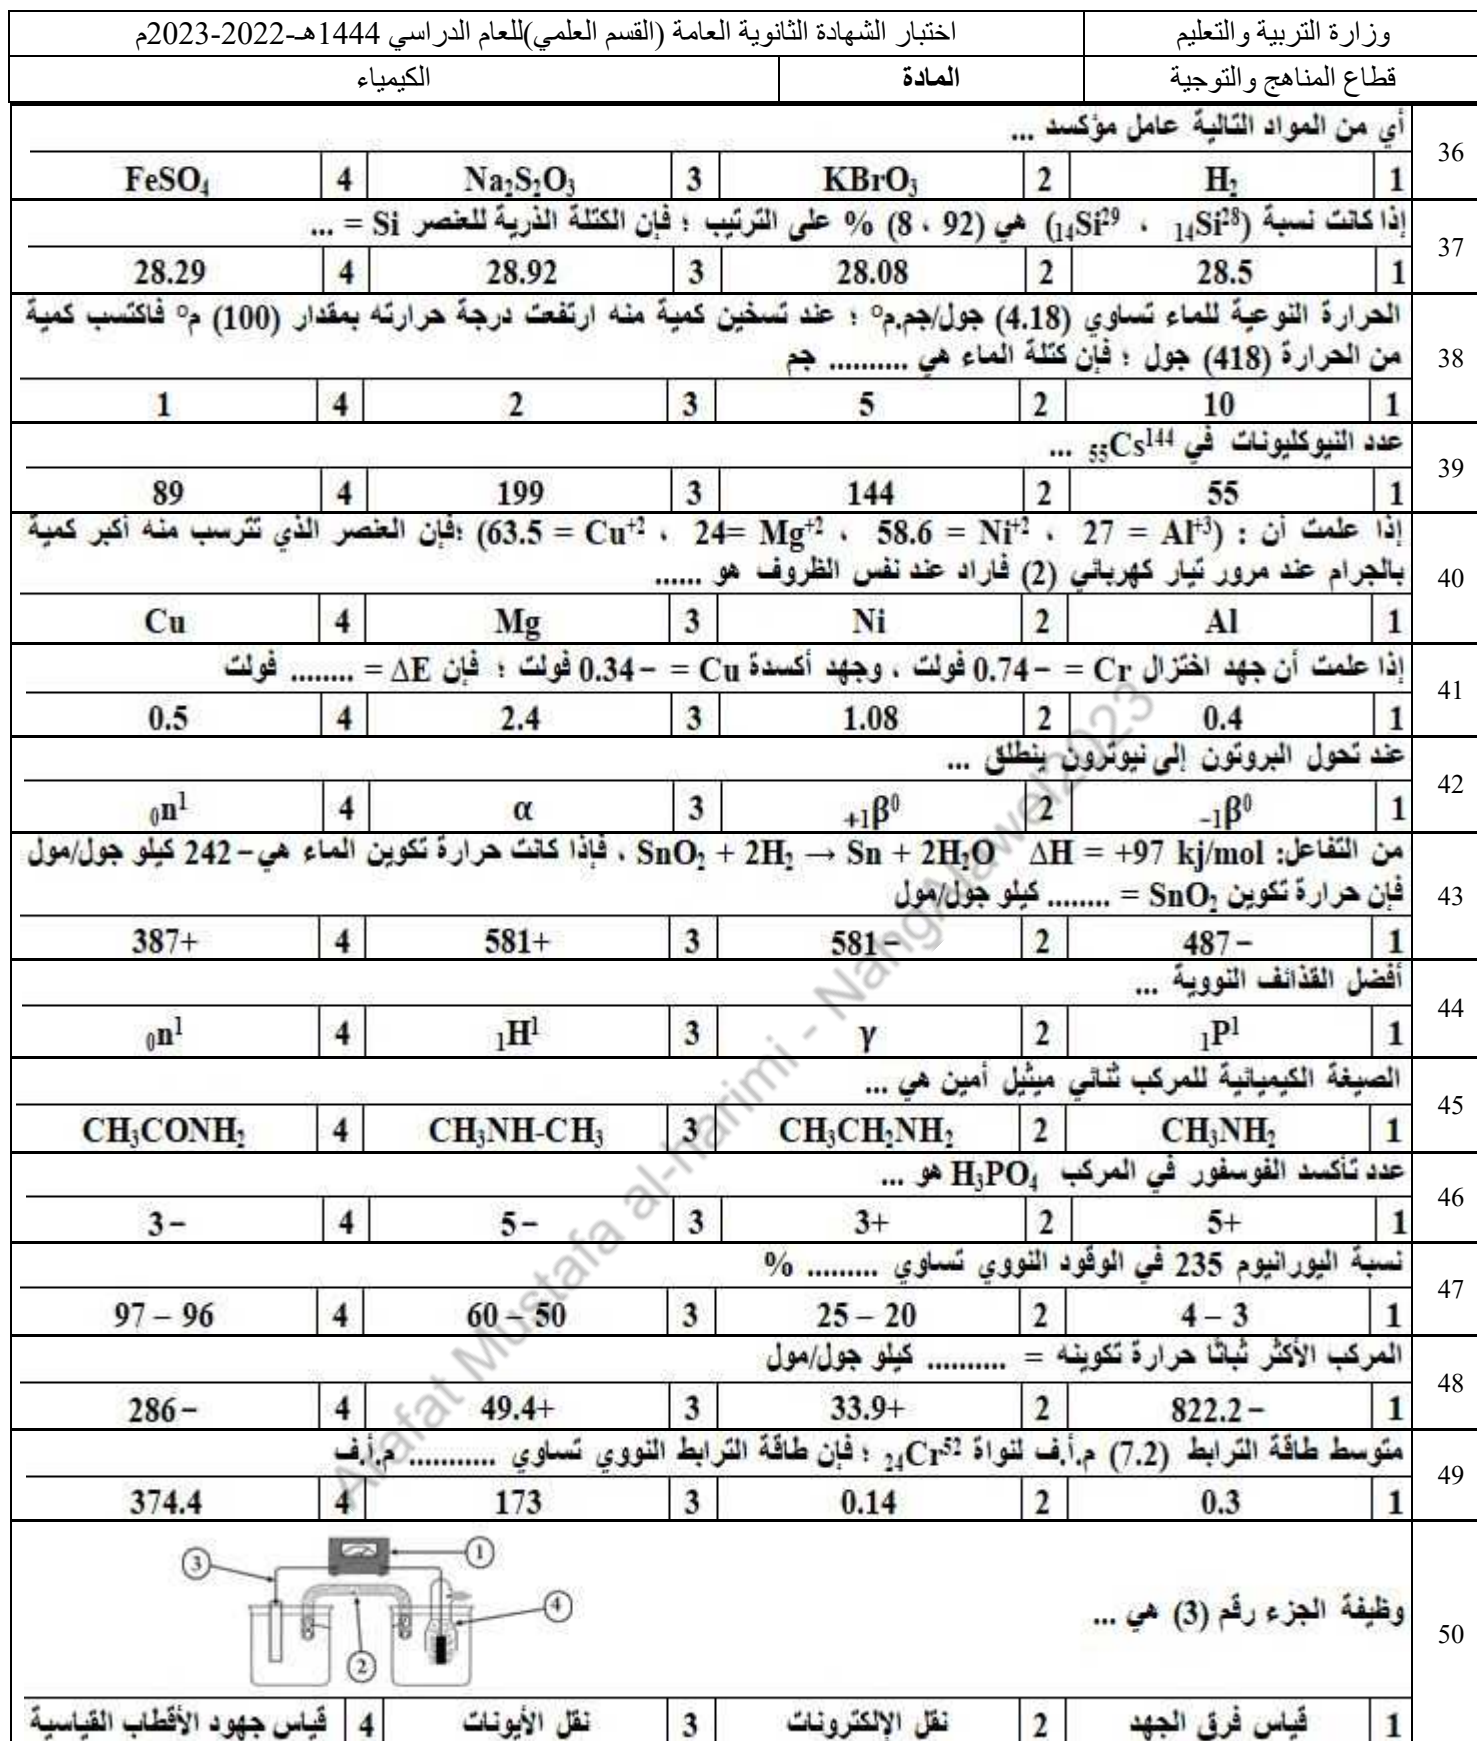 وزارة التربية والتعليم | اختبار الشهادة الثانوية العامة (القسم العلمي)للعام الدراسي 1444هـ-2022-2023م
قطاع المناهج والتوجية | المادة | الكيمياء
36 أي من المواد التالية عامل مؤكسد ...
1 H₂ | 2 KBrO₃ | 3 Na₂S₂O₃ | 4 FeSO₄
37 إذا كانت نسبة (₁₄Si²⁸ ، ₁₄Si²⁹) هي (92 ، 8) % على الترتيب ؛ فإن الكتلة الذرية للعنصر Si = ...
1 28.5 | 2 28.08 | 3 28.92 | 4 28.29
38 الحرارة النوعية للماء تساوي (4.18) جول/جم.م° ؛ عند تسخين كمية منه ارتفعت درجة حرارته بمقدار (100) م° فاكتسب كمية
من الحرارة (418) جول ؛ فإن كتلة الماء هي .......... جم
1 10 | 2 5 | 3 2 | 4 1
39 عدد النيوكليونات في ₅₅Cs¹⁴⁴ ...
1 55 | 2 144 | 3 199 | 4 89
40 إذا علمت أن : (Al⁺³ = 27 ، Ni⁺² = 58.6 ، Mg⁺² =24 ، Cu⁺² = 63.5) ؛فإن العنصر الذي تترسب منه أكبر كمية
بالجرام عند مرور تيار كهربائي (2) فاراد عند نفس الظروف هو ......
1 Al | 2 Ni | 3 Mg | 4 Cu
41 إذا علمت أن جهد اختزال Cr = –0.74 فولت ، وجهد أكسدة Cu = –0.34 فولت ؛ فإن ΔE = ........ فولت
1 0.4 | 2 1.08 | 3 2.4 | 4 0.5
42 عند تحول البروتون إلى نيوترون ينطلق ...
1 ₋₁β⁰ | 2 ₊₁β⁰ | 3 α | 4 ₀n¹
43 من التفاعل: SnO₂ + 2H₂ → Sn + 2H₂O ΔH = +97 kj/mol ، فإذا كانت حرارة تكوين الماء هي–242 كيلو جول/مول
فإن حرارة تكوين SnO₂ = ........ كيلو جول/مول
1 –487 | 2 –581 | 3 +581 | 4 +387
44 أفضل القذائف النووية ...
1 ₁P¹ | 2 γ | 3 ₁H¹ | 4 ₀n¹
45 الصيغة الكيميائية للمركب ثنائي ميثيل أمين هي ...
1 CH₃NH₂ | 2 CH₃CH₂NH₂ | 3 CH₃NH-CH₃ | 4 CH₃CONH₂
46 عدد تأكسد الفوسفور في المركب H₃PO₄ هو ...
1 +5 | 2 +3 | 3 –5 | 4 –3
47 نسبة اليورانيوم 235 في الوقود النووي تساوي ......... %
1 3 – 4 | 2 20 – 25 | 3 50 – 60 | 4 96 – 97
48 المركب الأكثر ثباتًا حرارة تكوينه = .......... كيلو جول/مول
1 –822.2 | 2 +33.9 | 3 +49.4 | 4 –286
49 متوسط طاقة الترابط (7.2) م.أ.ف لنواة ₂₄Cr⁵² ؛ فإن طاقة الترابط النووي تساوي ........... م.أ.ف
1 0.3 | 2 0.14 | 3 173 | 4 374.4
50 وظيفة الجزء رقم (3) هي ...
1
3
4
2
1 قياس فرق الجهد | 2 نقل الإلكترونات | 3 نقل الأيونات | 4 قياس جهود الأقطاب القياسية
Arafat Mustafa al-harimi - NangAlawel2023